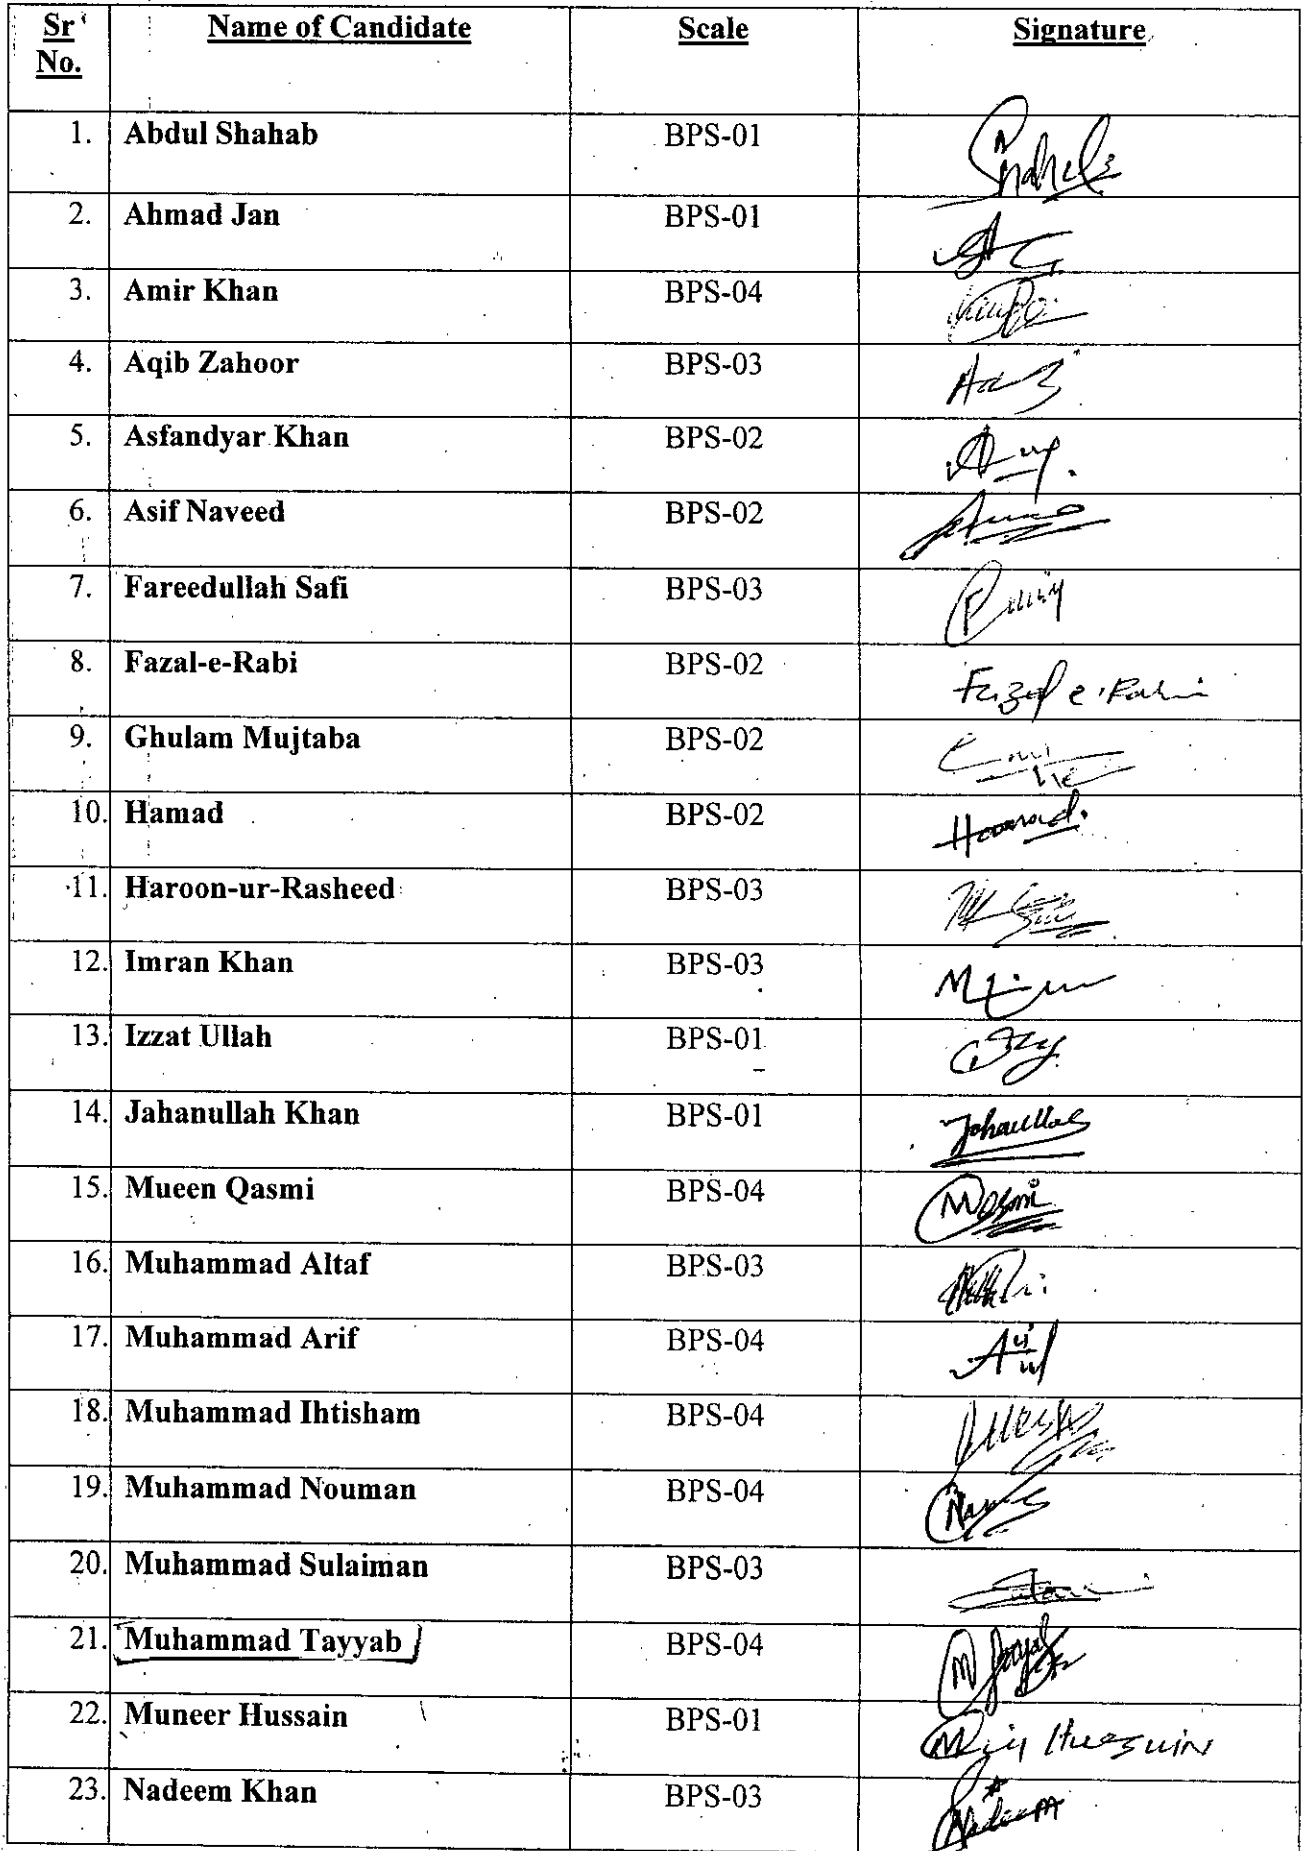 Sr Name of Candidate Scale Signature
No.
1. Abdul Shahab BPS-01
2. Ahmad Jan BPS-01
3. Amir Khan BPS-04
4. Aqib Zahoor BPS-03
5. Asfandyar Khan BPS-02
6. Asif Naveed BPS-02
7. Fareedullah Safi BPS-03
8. Fazal-e-Rabi BPS-02
9. Ghulam Mujtaba BPS-02
10. Hamad BPS-02 Hammad.
11. Haroon-ur-Rasheed BPS-03
12. Imran Khan BPS-03
13. Izzat Ullah BPS-01
14. Jahanullah Khan BPS-01
15. Mueen Qasmi BPS-04
16. Muhammad Altaf BPS-03
17. Muhammad Arif BPS-04
18. Muhammad Ihtisham BPS-04
19. Muhammad Nouman BPS-04
20. Muhammad Sulaiman BPS-03
21. Muhammad Tayyab BPS-04
22. Muneer Hussain BPS-01
23. Nadeem Khan BPS-03 Nadeem